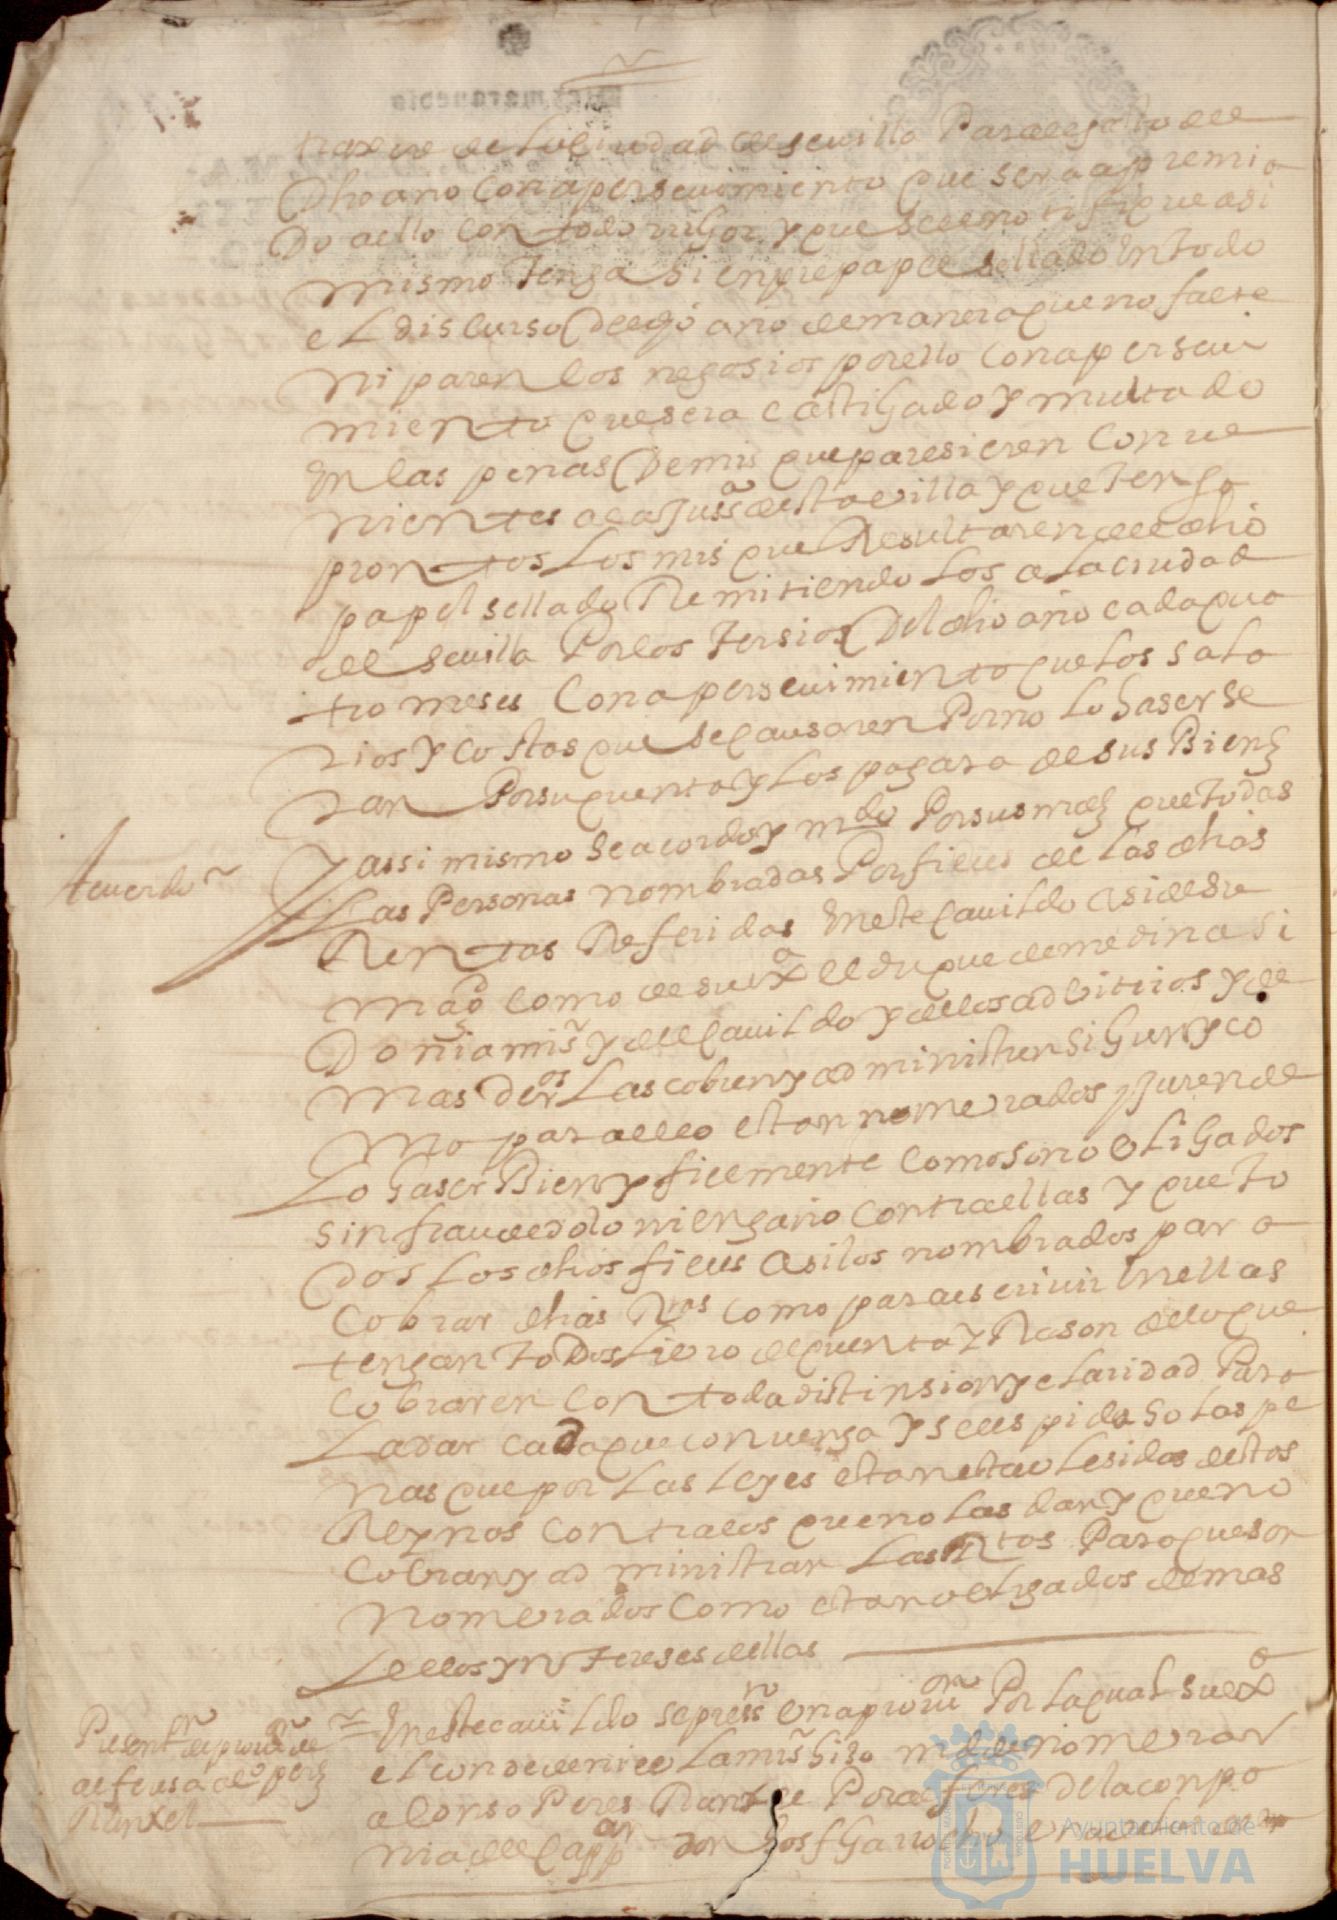 traerse de la Ciudad de sevilla Para el gasto del
Dho año Con apersevimiento que sera apremia
Do a ello Con todo rrigor y que se le notifique asi
mismo tenga Sienpre papel sellado En todo
el discurso Del dho año de manera que no falte
ni paren los negosios por ello Con apersevi
miento que sera castigado y multado
En las penas De mrs que paresieren Conve
nientes a la Jussª desta villa y que tenga
prontos Los mrs que Resultaren del dho
papel sellado Remitiendo Los a la ciudad
de sevilla Por los tersios Del dho año cada qua
tro meses Con apersevimiento que los sala
rios y costas que se causaren Por no Lo haser se
ran Por su quenta y Los pagara de sus Bienes
Acuerdo
Y assi mismo Se acordo y mdo Por sus mds que todas
Las Personas nombradas Por fieles de las dhas
Rentas Referidas En este Cavildo asi de su
Magd como de su exª el duque de medina si
Donia mi sr y del Cavildo y de los adbitrios y de
mas deros Las cobren y administren Sigun y co
mo para ello estan nombrados y Juren de
Lo haser Bien y fielmente Como son obligados
sin fraude dolo ni engaño Contra ellas y que to
dos Los dhos fieles asi los nombrados para
Cobrar dhas Rtas como para escrivir En ellas
tengan todos Libro de quenta y Rason de lo que
Cobraren Con toda distinsion y claridad Para
La dar cada que convenga y se les pida so las pe
nas que por Las leyes estan establesidas destos
Reynos Contra los que no las dan y que no
Cobran y administran Las Rtas Para que son
nombrados Como estan obligados demas
de los yntereses dellas
Presentn de provn de
alferes a alo peres
Ranxel
= En este cavildo se press una provin Por la qual su exª
el conde de niebla mi sr hiso md de nombrar
a alonso Peres Ranxel Por alferes De la conpa
nia del Cappn don Josf Garrocho
Ayuntamiento de
HUELVA